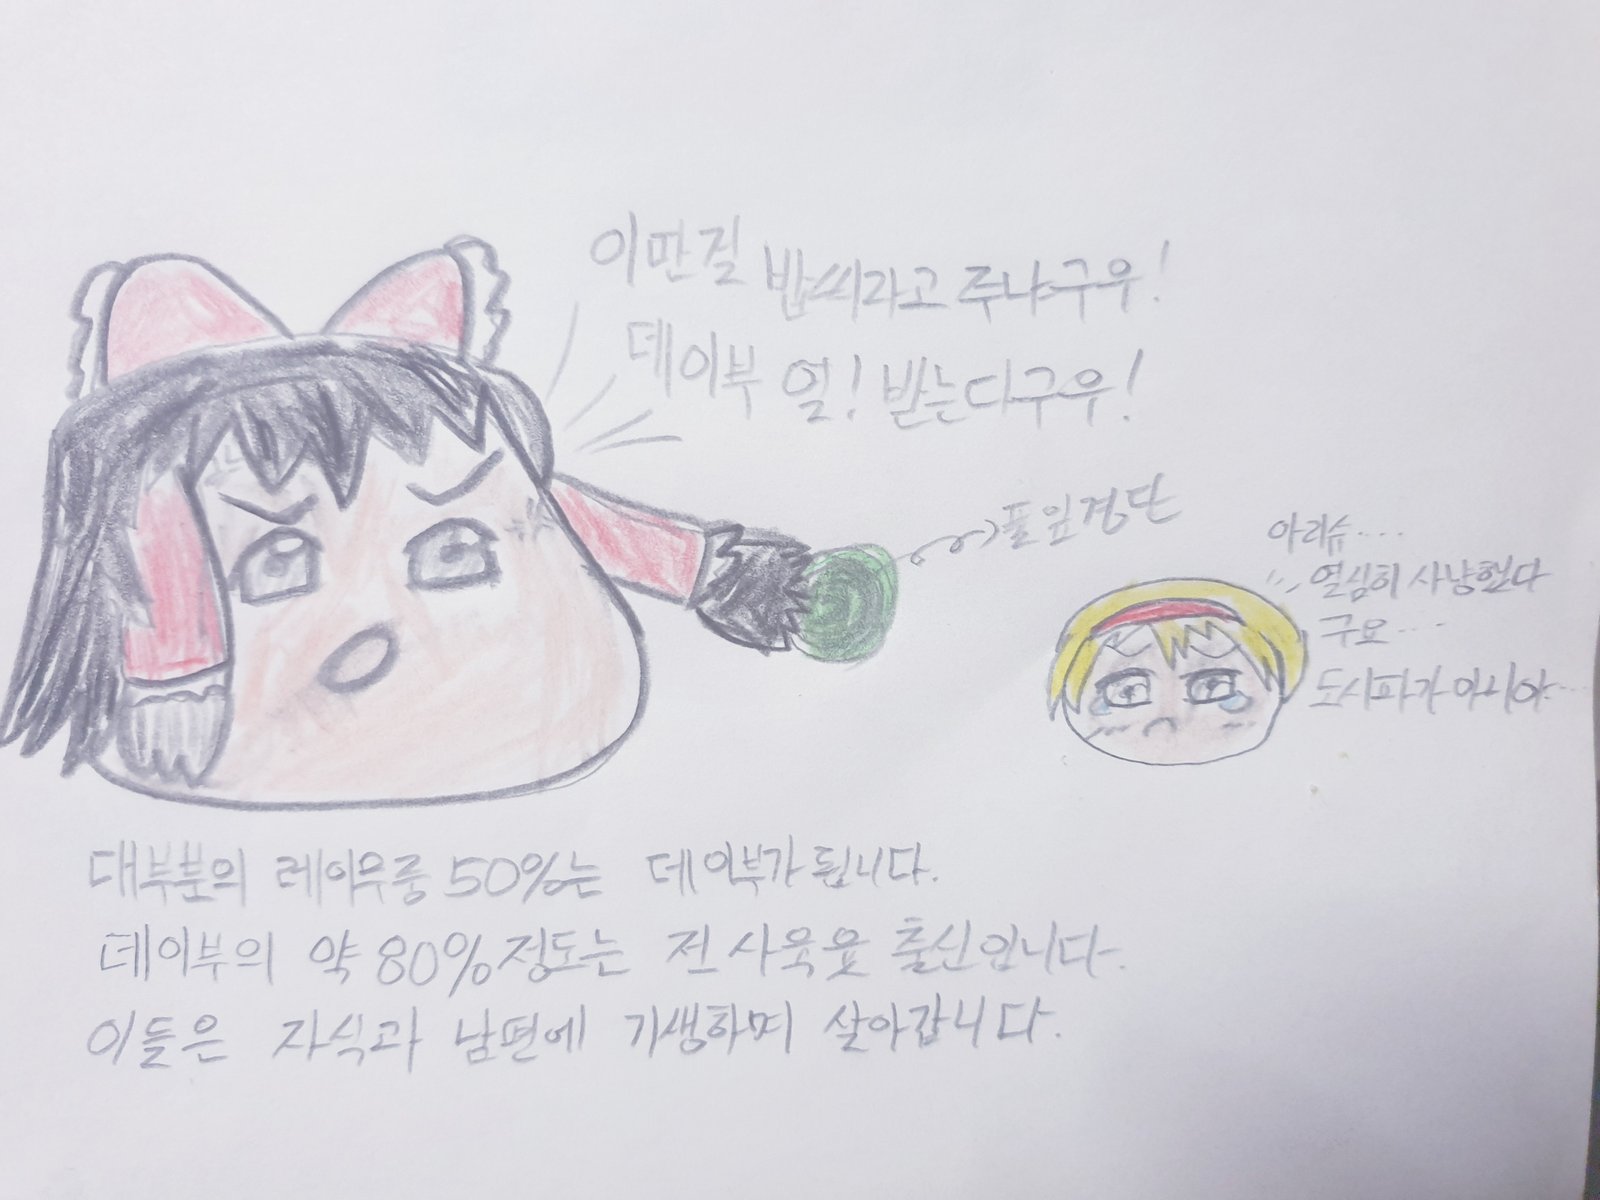 이딴걸 밥씨라고 주냐구우!
데이부 열! 받는다구우!
풀잎경단
아리슈....
열심히 사냥했다
구요....
도시파가 아니야...
대부분의 레이무중 50%는 데이부가 됩니다.
데이부의 약 80%정도는 전 사육윳 출신입니다.
이들은 자식과 남편에 기생하며 살아갑니다.